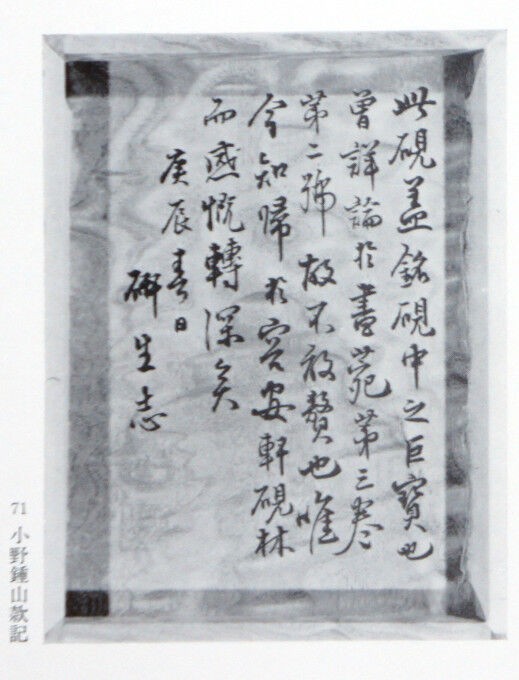 此硯蓋銘硯中之巨寶也
曾詳論於書苑第三卷
第二號故不敢贅也唯
今知歸於容安軒硯林
而感慨轉深矣
庚辰春日
研生志
71 小野鍾山款記